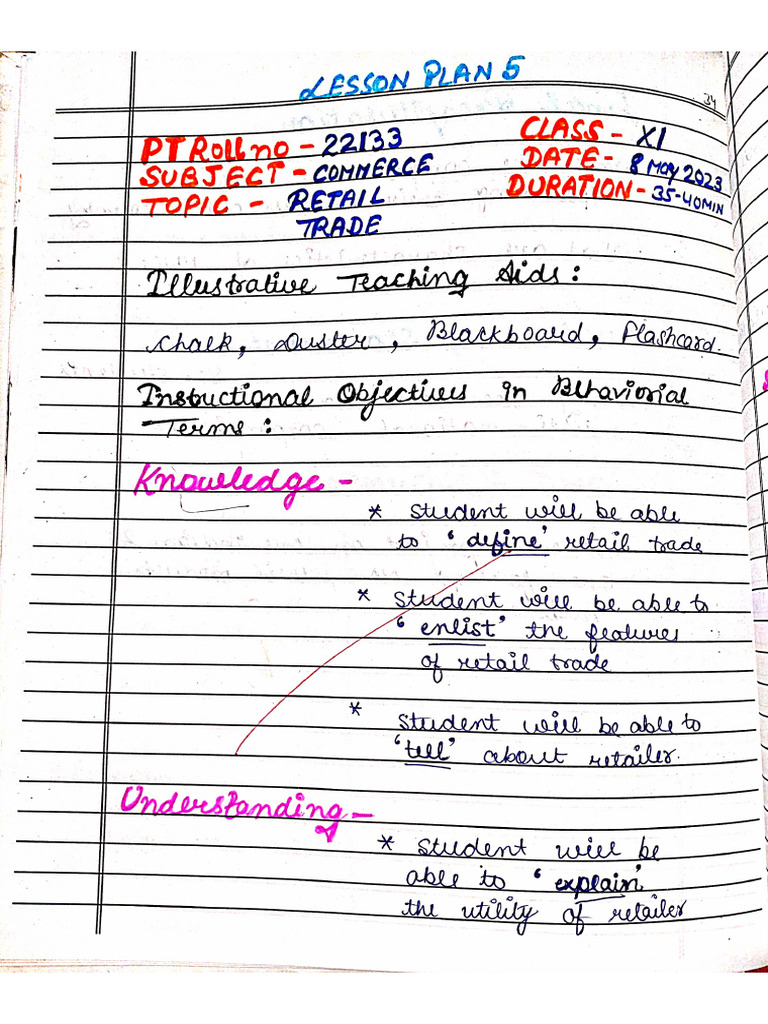 LESSON PLAN 5
34
PT Roll no - 22133 CLASS - XI
SUBJECT - COMMERCE DATE - 8 MAY 2023
TOPIC - RETAIL DURATION - 35-40MIN
TRADE
Illustrative Teaching Aids :
Chalk, Duster, Blackboard, Flashcard.
Instructional Objectives in Behaviorial
Terms :
Knowledge -
* Student will be able
to ‘define’ retail trade
* Student will be able to
‘enlist’ the features
of retail trade
* Student will be able to
‘tell’ about retailer.
Understanding -
* Student will be
able to ‘explain’
the utility of retailer